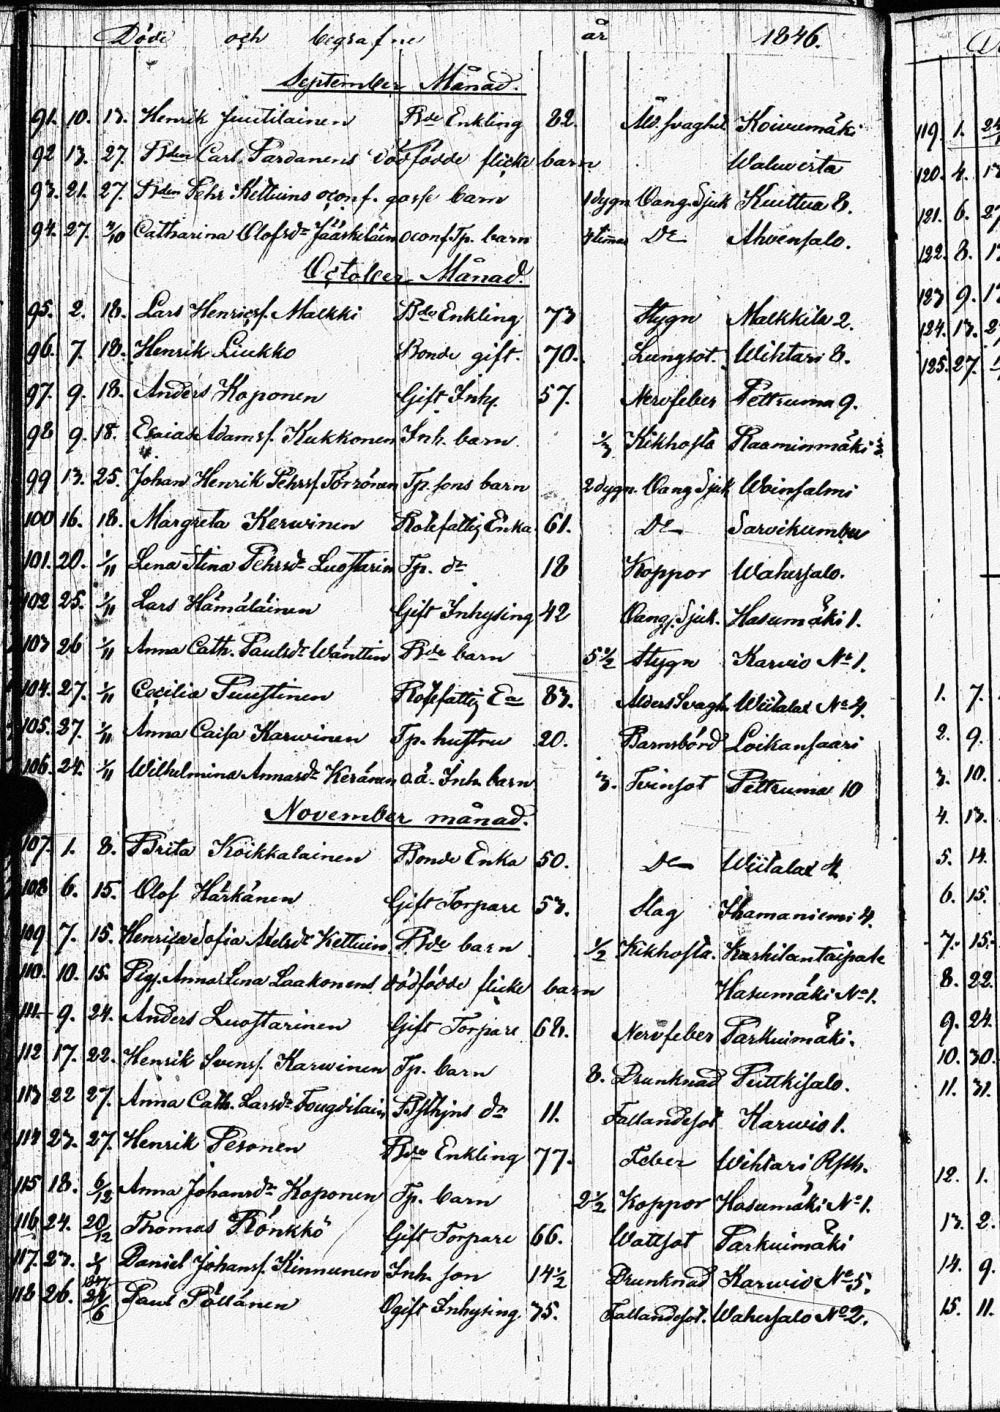 Döde och begrafne år 1846.
September Månad.
91. 10. 13. Henrik Juutilainen Bde Enkling 82. Koivumäki
92 13. 27. Bden Carl Pardanens dödfödde flicke barn Waluvirta
93. 21. 27. Bden Pehr Kettuins oconf. gosse barn 1 dygn Oang. Sjuk Kuittua 8.
94. 27. 4/10 Catharina Olofsdr Jääskeläin oconf. Tp. barn 4 timar Do Ahvensalo.
October Månad.
95. 2. 18. Lars Henricsf. Malkki Bde Enkling 73 Stygn Malkkila 2.
96. 7. 18. Henrik Liukko Bonde gift. 70. Lungsot. Wihtari 8.
97. 9. 18. Anders Koponen Gift Inh. 57. Nervfeber Pettruma 9.
98 9. 18. Esaias Adamsf. Kukkonen Inh. barn Kikhosta Raaminmäki 3.
99 13. 25. Johan Henrik Pehrsf. Törrönen Tp. sons barn 2 dygn. Oang Sjuk Woinsalmi
100 16. 18. Margreta Kerwinen Rotefattig Enka 61. Do Sarvikumbu
101. 20. 1/11 Lena Stina Pehrsdr Luostarin Tp. dr 18 Koppor Wahersalo.
102 25. 1/11 Lars Hämäläinen Gift Inhysing 42 Oang. Sjuk. Hasumäki 1.
103 26 1/11 Anna Cath. Paulsdr Wänttin Bde barn 5 1/2 Stygn Karvio No 1.
104. 27. 1/11 Cecilia Puustinen Rotefattig Ea 83. Alders Svagh. Wiitalax No 4.
105. 27. 1/11 Anna Caisa Karwinen Tp. hustru 20. Barnsbörd Loikansaari
106. 24. 1/11 Wilhelmina Annasdr Keränen o.ä. Inh. barn Tvinsot Pettruma 10
November månad.
107. 1. 8. Brita Koikkalainen Bonde Enka 50. Do Wiitalax 4.
108 6. 15. Olof Härkänen Gift Torpare 53. Slag 4.
109 7. 15. Henrica Sofia Axelsdr Kettuin. Bde barn 1/2 Kikhosta. Karhilantaipale
110. 10. 15. Pig. Anna Lena Laakonens dödfödde flicke barn Hasumäki No 1.
111 9. 24. Anders Luostarinen Gift Torpare 68. Nervfeber Parkuimäki.
112 17. 22. Henrik Svensf. Karwinen Tp. barn 8. Drunknad Puttkisalo.
113 22 27. Anna Cath. Larsdr Fougdilain dr 11. Fallandesot Karvio 1.
114 23. 27. Henrik Pesonen Bde Enkling 77. Feber Wihtari
115 18. 6/12 Anna Johansdr Koponen Tp. barn 2 1/2 Koppor Hasumäki No 1.
116 24. 20/12 Thomas Rönkkö Gift Torpare 66. Wattsot Parkuimäki
117. 23. Daniel Johansf. Kinnunen Inh. son 14 1/2 Drunknad Karvio No 5.
118 26. 1847 24/6 Paul Pöllänen Ogift Inhysing 75. Fallandesot. Wahersalo No 2.
119. 1.
120. 4.
121. 6. 27
122. 8.
123 9.
124. 13.
125. 27.
1. 7.
2. 9.
3. 10.
4. 13.
5. 14.
6. 15.
7. 15.
8. 22.
9. 24.
10. 30.
11. 31.
12. 1.
13. 2.
14. 9.
15. 11.